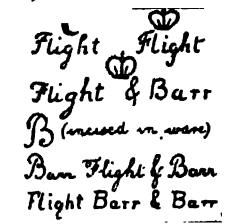 Flight Flight
Flight & Barr
B (incised in ware)
Barr Flight & Barr
Flight Barr & Barr